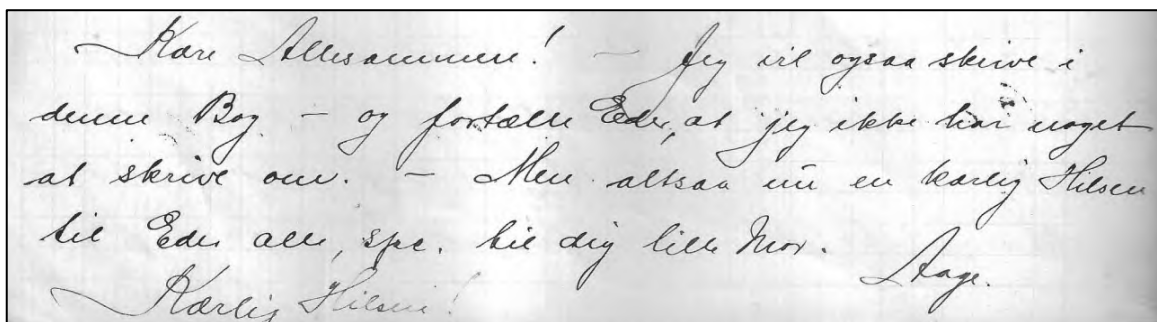 Kære Allesammen! — Jeg vil ogsaa skrive i
denne Bog — og fortælle Eder, at jeg ikke har noget
at skrive om. — Men altsaa nu en kærlig Hilsen
til Eder alle, spec. til dig lille Mor.
Aage.
Kærlig Hilsen!